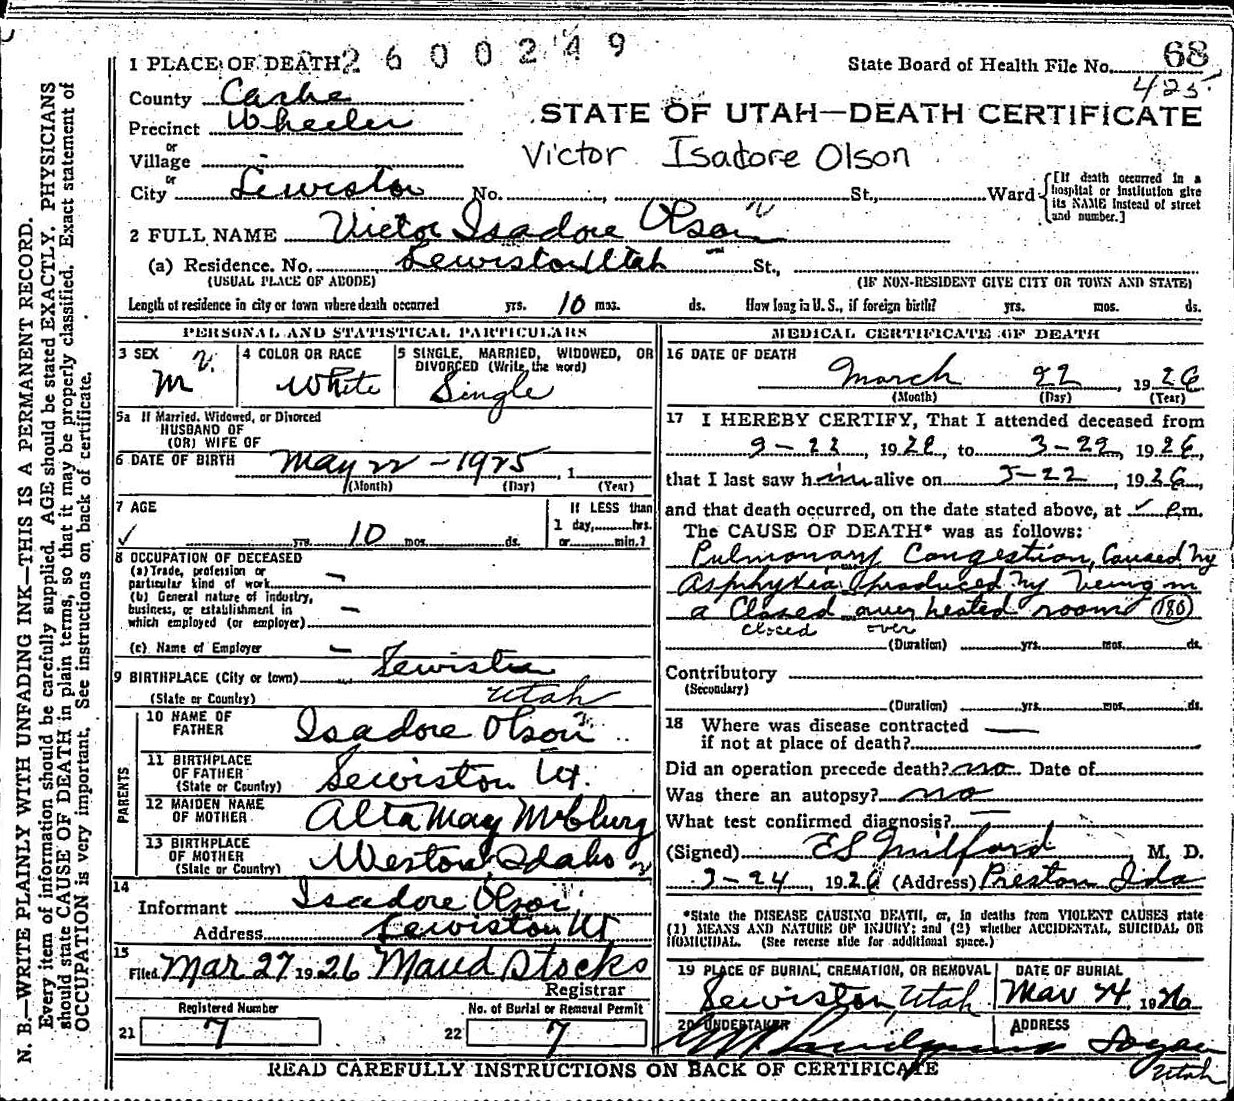 2600249
1 PLACE OF DEATH
State Board of Health File No. 68
425
County Cache
STATE OF UTAH—DEATH CERTIFICATE
Precinct Wheeler
or
Village -
Victor Isadore Olson
or
City Lewiston No. , St., Ward
[If death occurred in a hospital or institution give its NAME instead of street and number.]
2 FULL NAME Victor Isadore Olson
(a) Residence. No. Lewiston Utah St.,
(USUAL PLACE OF ABODE) (IF NON-RESIDENT GIVE CITY OR TOWN AND STATE)
Length of residence in city or town where death occurred yrs. 10 mos. ds. How long in U. S., if foreign birth? yrs. mos. ds.
PERSONAL AND STATISTICAL PARTICULARS
3 SEX
M
4 COLOR OR RACE
White
5 SINGLE, MARRIED, WIDOWED, OR
DIVORCED (Write the word)
Single
5a If Married, Widowed, or Divorced
HUSBAND OF
(OR) WIFE OF
6 DATE OF BIRTH May 22 - 1925, 1
(Month) (Day) (Year)
7 AGE
yrs. 10 mos. ds.
If LESS than
1 day, hrs.
or min.?
8 OCCUPATION OF DECEASED
(a) Trade, profession or
particular kind of work —
(b) General nature of industry,
business, or establishment in
which employed (or employer) —
(c) Name of Employer —
9 BIRTHPLACE (City or town) Lewiston
(State or Country) Utah
PARENTS
10 NAME OF
FATHER Isadore Olson
11 BIRTHPLACE
OF FATHER
(State or Country) Lewiston Ut.
12 MAIDEN NAME
OF MOTHER Alta May McClurg
13 BIRTHPLACE
OF MOTHER
(State or Country) Weston Idaho
14
Informant Isadore Olson
Address Lewiston Ut
15
Filed Mar 27 1926 Maud Stocks
Registrar
Registered Number
21 7
No. of Burial or Removal Permit
22 7
MEDICAL CERTIFICATE OF DEATH
16 DATE OF DEATH
March 22, 1926
(Month) (Day) (Year)
17 I HEREBY CERTIFY, That I attended deceased from
, 19 , to 3-22, 1926,
that I last saw him alive on 3-22, 1926,
and that death occurred, on the date stated above, at P.m.
The CAUSE OF DEATH* was as follows:
Pulmonary Congestion, Caused by
Asphyxia produced by being in
a Closed over heated room (180)
closed over
(Duration) yrs. mos. ds.
Contributory
(Secondary)
(Duration) yrs. mos. ds.
18 Where was disease contracted
if not at place of death? —
Did an operation precede death? no Date of
Was there an autopsy? no
What test confirmed diagnosis? —
(Signed) ES Milford M. D.
3-24, 1926 (Address) Preston Ida
*State the DISEASE CAUSING DEATH, or, in deaths from VIOLENT CAUSES state
(1) MEANS AND NATURE OF INJURY; and (2) whether ACCIDENTAL, SUICIDAL OR
HOMICIDAL. (See reverse side for additional space.)
19 PLACE OF BURIAL, CREMATION, OR REMOVAL
Lewiston, Utah
DATE OF BURIAL
Mar 24, 1926
20 UNDERTAKER
ADDRESS
Logan
Utah
READ CAREFULLY INSTRUCTIONS ON BACK OF CERTIFICATE
N. B.—WRITE PLAINLY WITH UNFADING INK—THIS IS A PERMANENT RECORD.
Every item of information should be carefully supplied. AGE should be stated EXACTLY. PHYSICIANS
should state CAUSE OF DEATH in plain terms, so that it may be properly classified. Exact statement of
OCCUPATION is very important. See instructions on back of certificate.